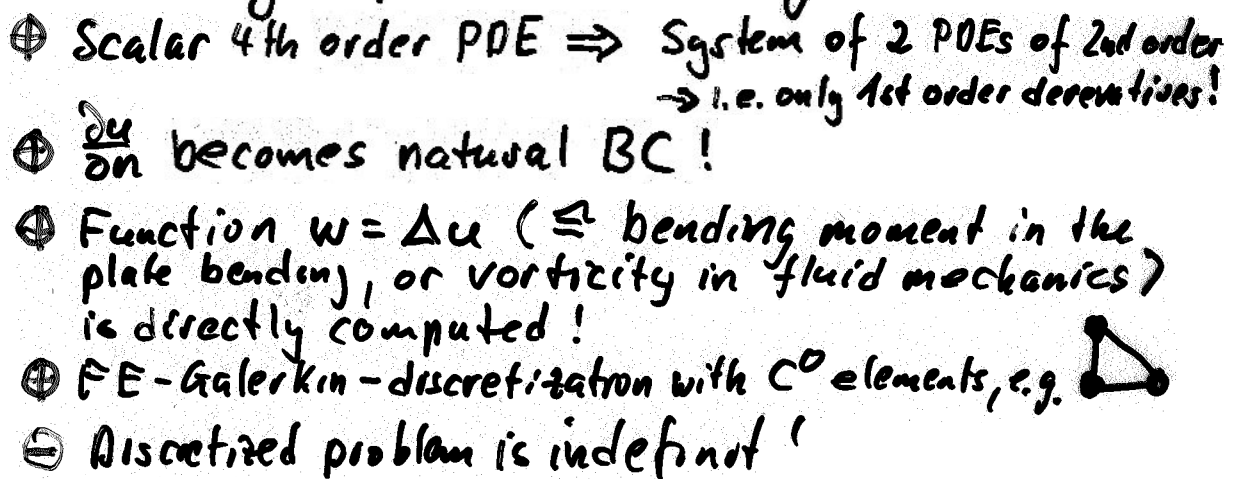 ⊕ Scalar 4th order PDE ⇒ System of 2 PDEs of 2nd order
→ i.e. only 1st order derevatives!
⊕ ∂u/∂n becomes natural BC !
⊕ Function w = Δu (≙ bending moment in the
plate bending, or vorticity in fluid mechanics)
is directly computed !
⊕ FE-Galerkin-discretization with C⁰ elements, e.g.
⊖ Discretized problem is indefinit !